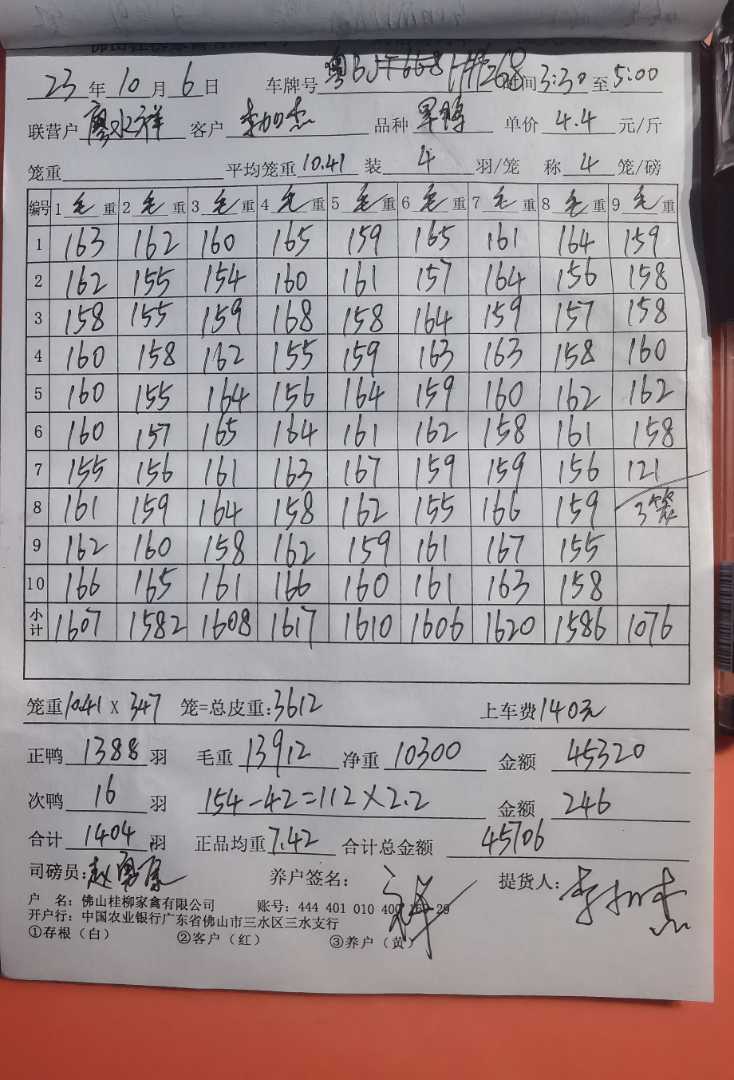 23年10月6日 车牌号 时间3:30至5:00
联营户 廖水祥 客户 李加杰 品种 单价 4.4 元/斤
笼重 平均笼重10.41 装 4 羽/笼 称 4 笼/磅
编号 1毛重 2毛重 3毛重 4毛重 5毛重 6毛重 7毛重 8毛重 9毛重
1 163 162 160 165 159 165 161 164 159
2 162 155 154 160 161 157 164 156 158
3 158 155 159 168 158 164 159 157 158
4 160 158 162 155 159 163 163 158 160
5 160 155 164 156 164 159 160 162 162
6 160 157 165 164 161 162 158 161 158
7 155 156 161 163 167 159 159 156 121
8 161 159 164 158 162 155 166 159 3笼
9 162 160 158 162 159 161 167 155
10 166 165 161 166 160 161 163 158
小计 1607 1582 1608 1617 1610 1606 1620 1586 1076
笼重10.41 X 347 笼=总皮重:3612 上车费140元
正鸭 1388 羽 毛重 13912 净重 10300 金额 45320
次鸭 16 羽 154-42=112×2.2 金额 246
合计 1404 羽 正品均重7.42 合计总金额 45706
司磅员: 养户签名: 祥 提货人: 李加杰
户 名: 佛山桂柳家禽有限公司 账号: 444 401 010 400 29
开户行: 中国农业银行广东省佛山市三水区三水支行
①存根(白) ②客户(红) ③养户(黄)